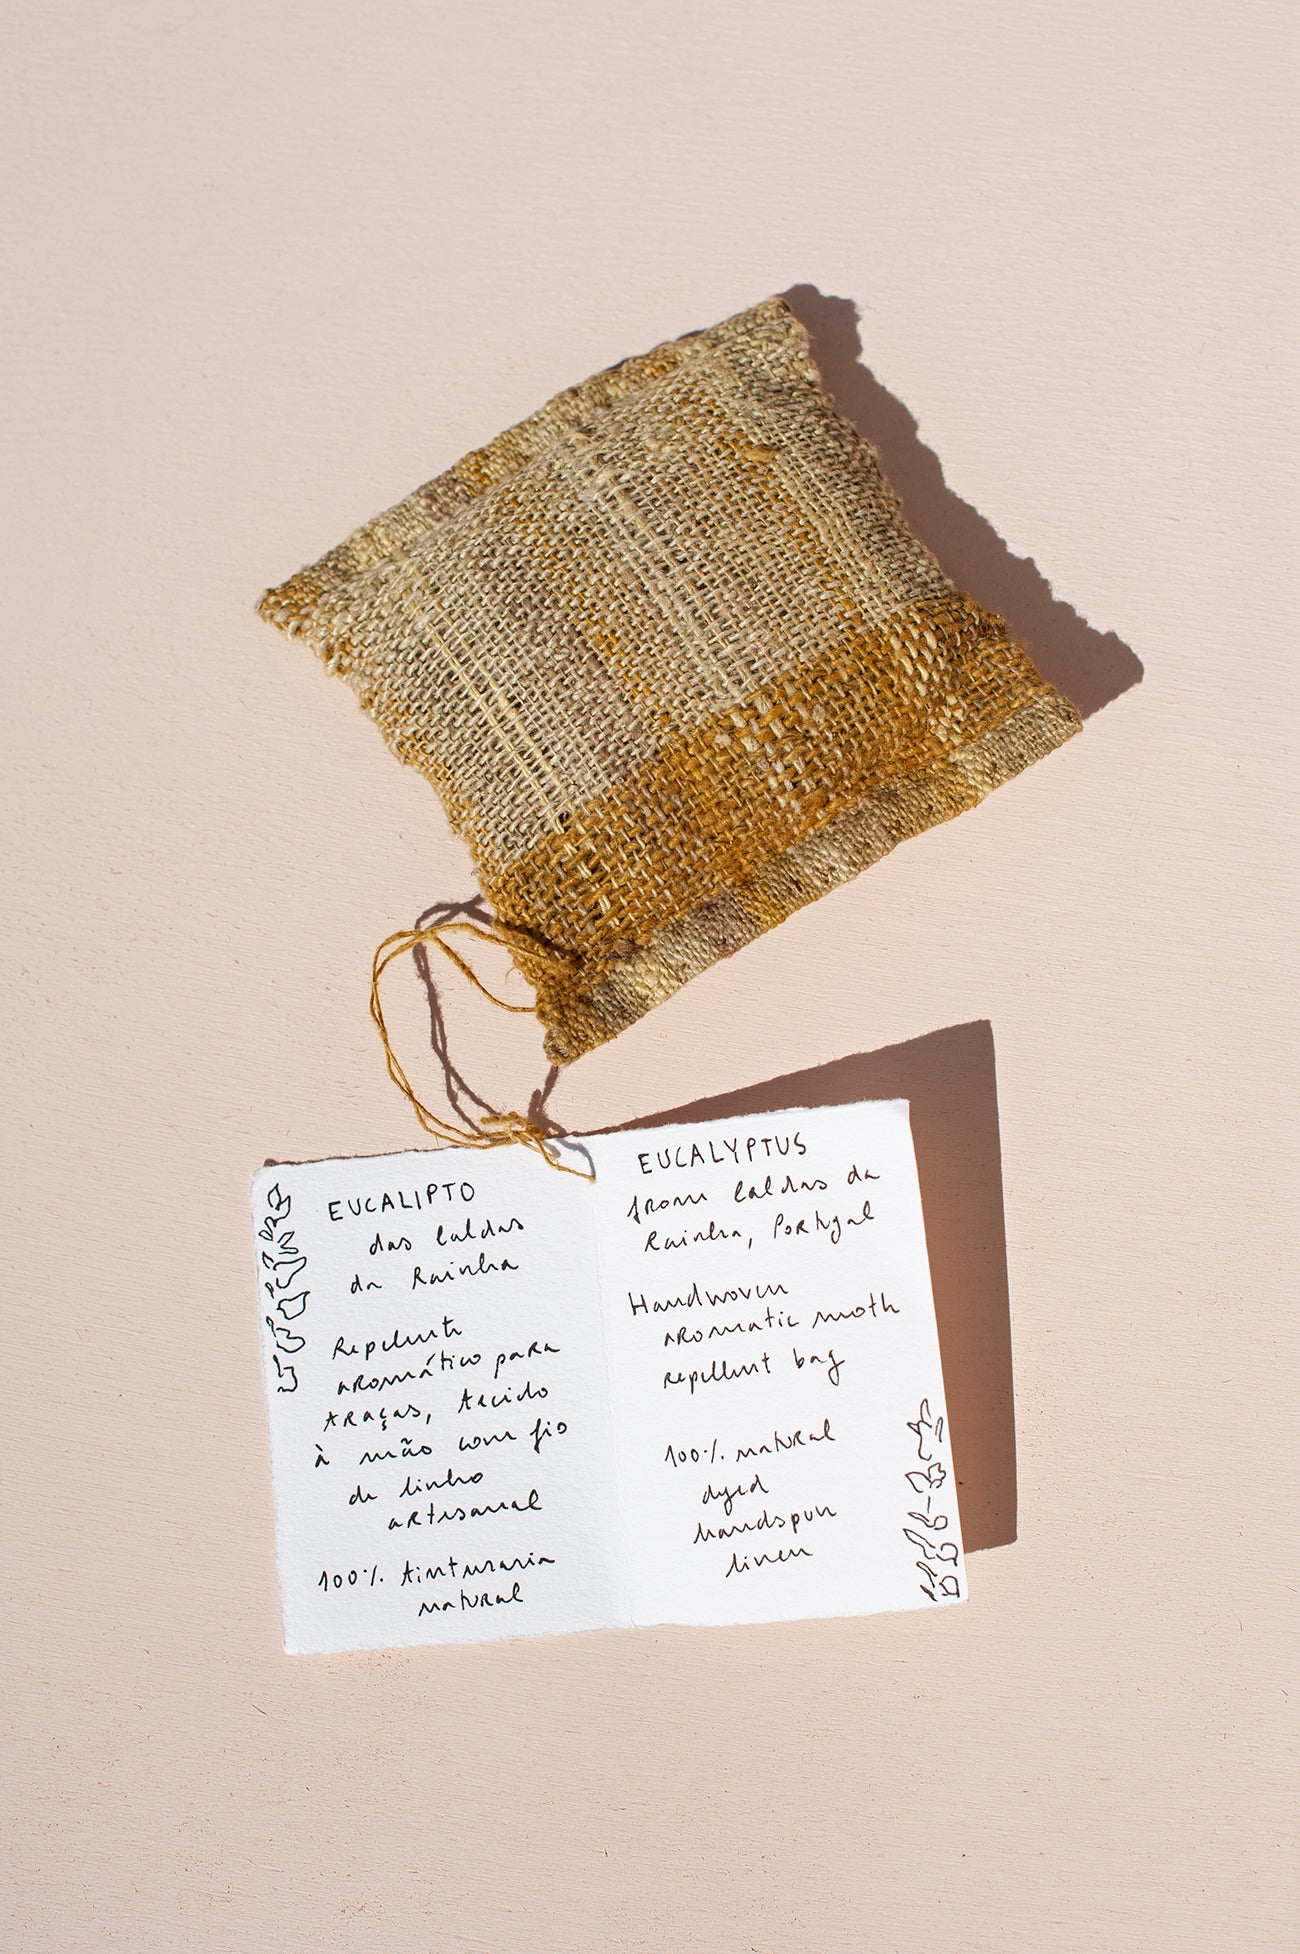 EUCALIPTO
das Caldas
da Rainha
Repelente
aromático para
traças, tecido
à mão com fio
de linho
artesanal
100% tinturaria
natural
EUCALYPTUS
from Caldas da
Rainha, Portugal
Handwoven
aromatic moth
repellent bag
100% natural
dyed
handspun
linen